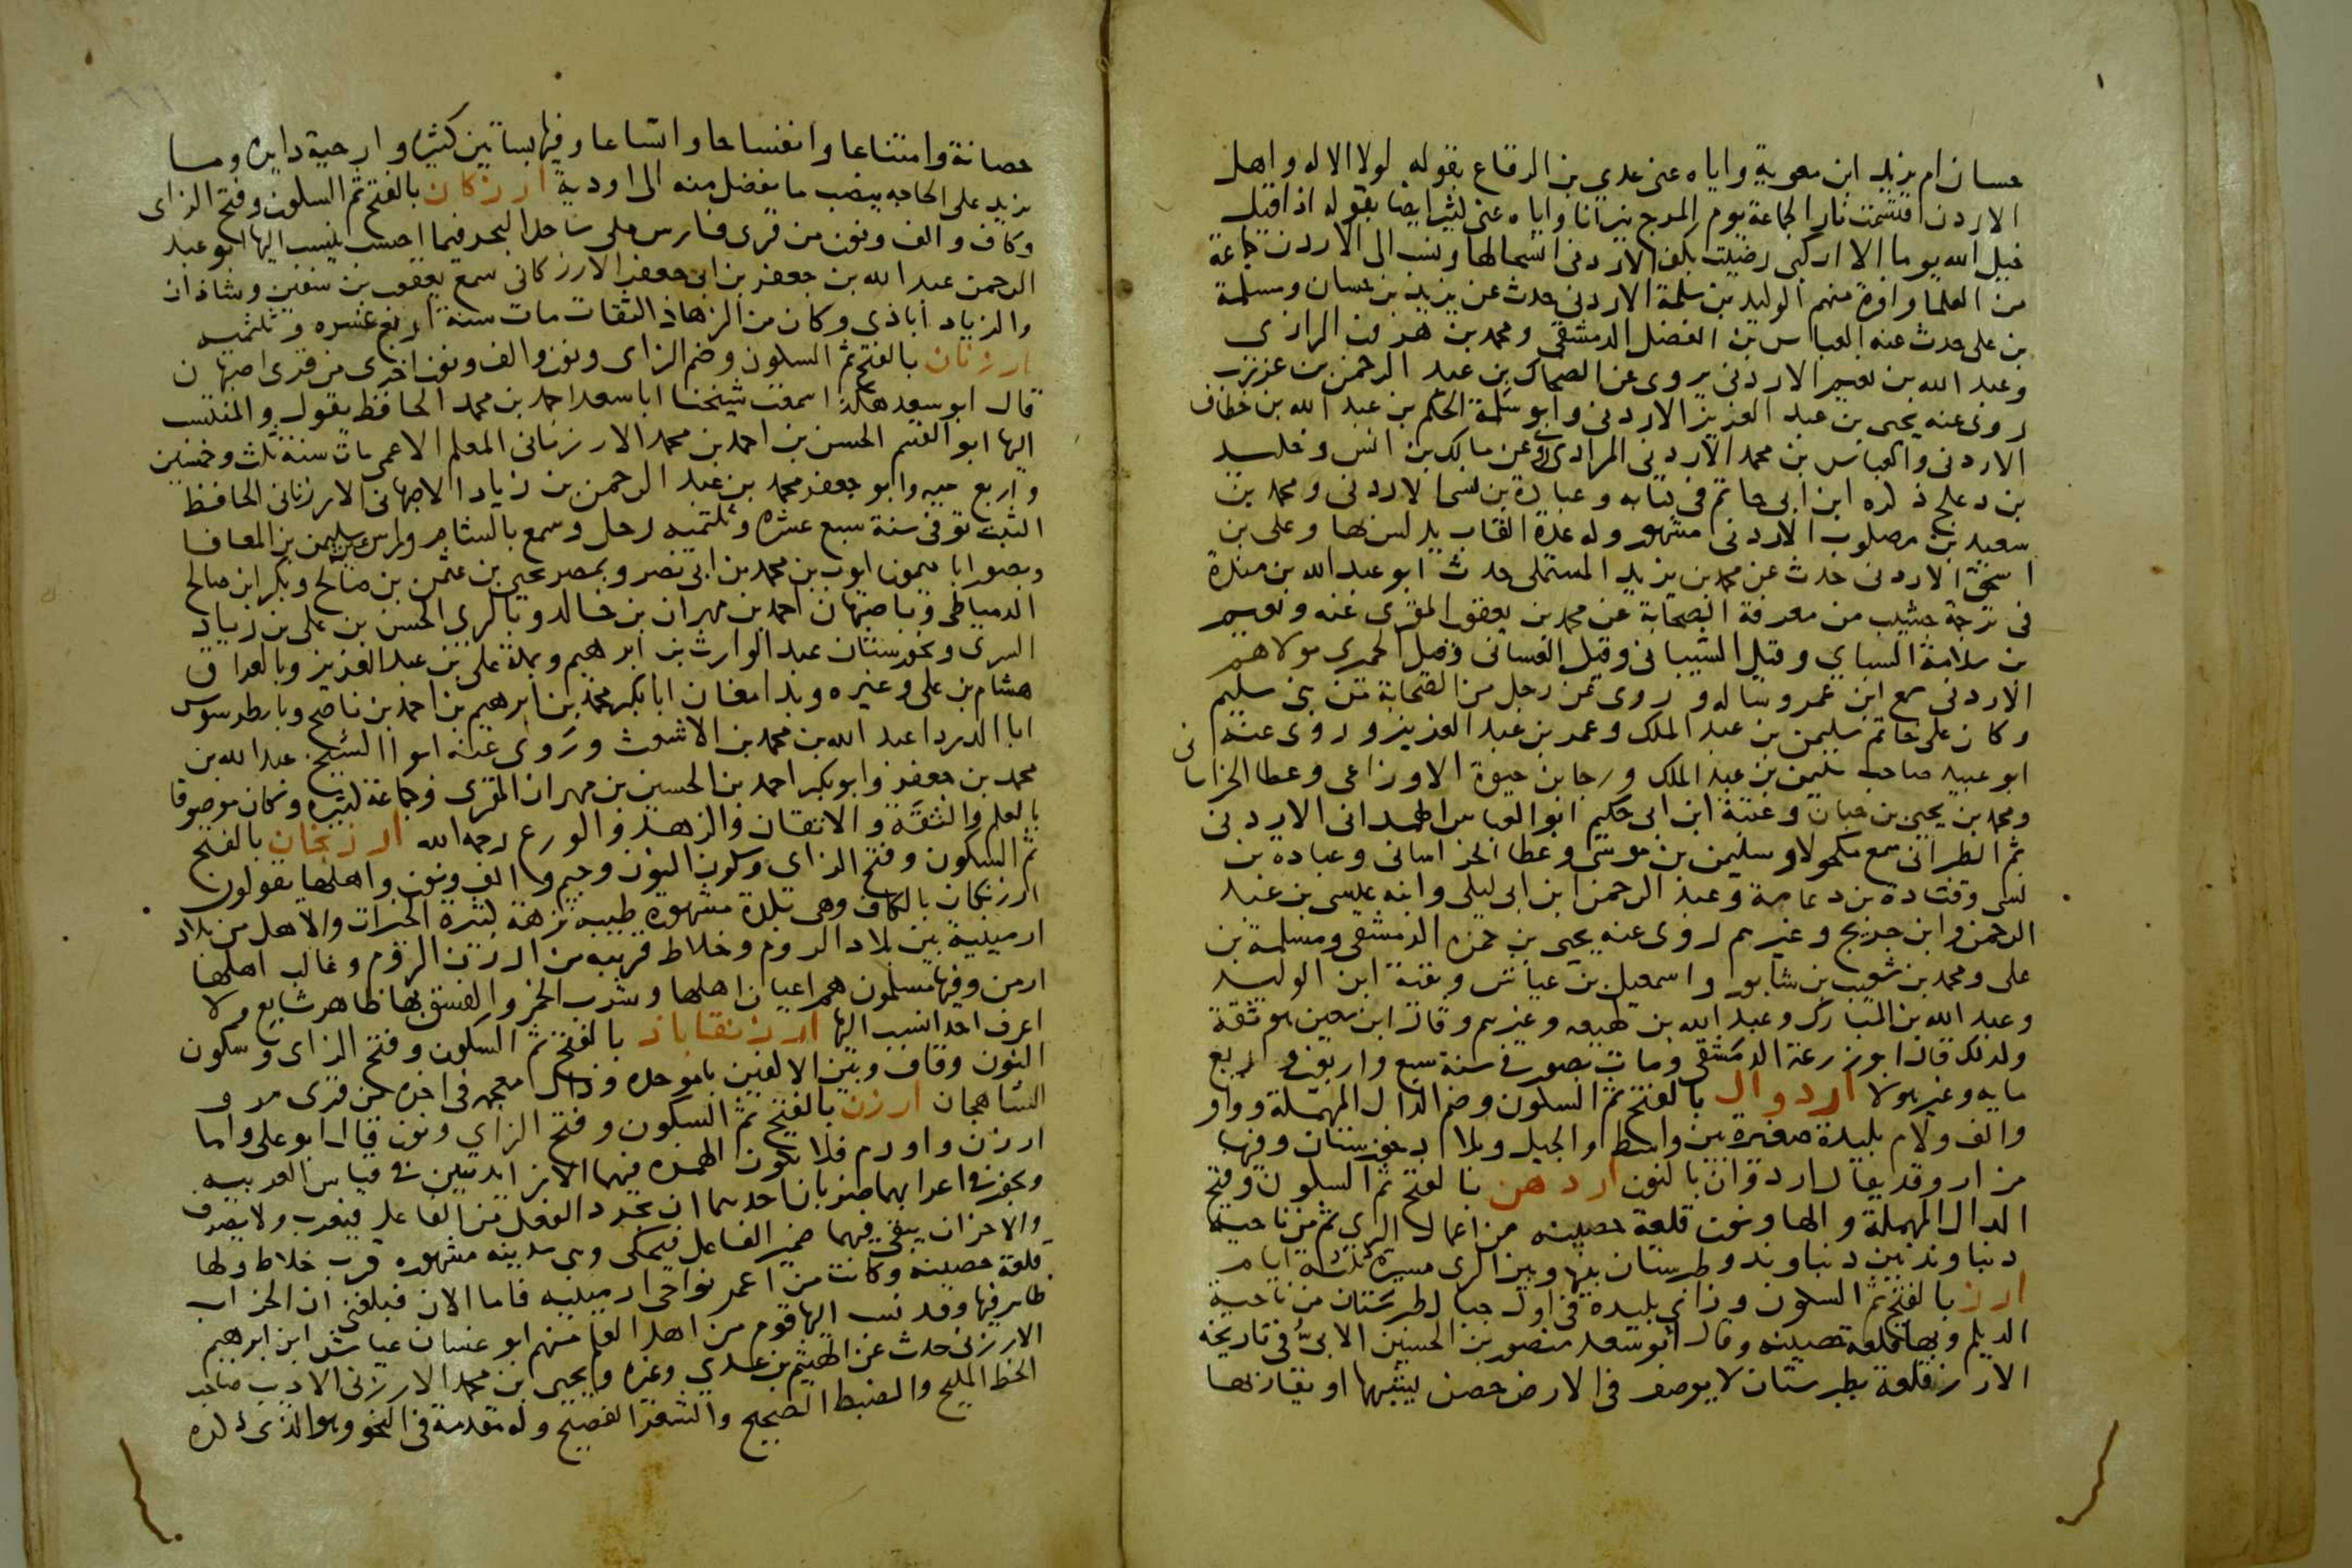 حسان ام يزيد ابن معوية واياه عنى عدي بن الرقاع بقوله لولا الاله واهل
الاردن اقتسمت نار الجماعة يوم المرج نيرانا واياه عنى كثير ايضا بقوله اذا قيل
خيل الله يوما الا اركبي رضيت بكف الاردنى انسحالها وينسب الى الاردن جماعة
من العلما وافرة منهم الوليد بن سلمة الاردنى حدث عن يزيد بن حسان ومسلمة
بن على حدث عنه العباس بن الفضل الدمشقى ومحمد بن هرون الرازى
وعبد الله بن نعيم الاردنى يروى عن الضحاك بن عبد الرحمن بن عزرب
روى عنه يحيى بن عبد العزيز الاردنى وابو سلمة الحكم بن عبد الله بن خطاف
الاردنى والعباس بن محمد الاردنى المرادى روى عن مالك بن انس وخليد
بن دعلج ذكره ابن ابى حاتم فى كتابه وعبادة بن نسى الاردنى ومحمد بن
سعيد بن مصلوب الاردنى مشهور وله عدة القاب يدلس بها وعلى بن
اسحق الاردنى حدث عن محمد بن يزيد المستملى حدث ابو عبد الله بن مندة
فى ترجمة خبيب من معرفة الصحابة عن محمد بن يعقوب المقرى عنه ونعيم
بن سلامة السباي وقيل الشيبانى وقيل الغسانى وقيل الحميرى مولاهم
الاردنى سمع ابن عمر وساله وروى عن رجل من الصحابة من بنى سليم
وكان على خاتم سليمن بن عبد الملك وعمر بن عبد العزيز وروى عنه
ابو عبيد صاحب سليمن بن عبد الملك ورجا بن حيوة الاوزاعى وعطا الخراسانى
ومحمد بن يحيى بن حبان وعتبة ابن ابى حكيم ابو العباس الهمدانى الاردنى
ثم الطبرانى سمع مكحولا وسليمن بن موسى وعطا الخراسانى وعبادة بن
نسى وقتادة بن دعامة وعبد الرحمن ابن ابى ليلى وابنه عيسى بن عبد
الرحمن وابن جريج وغيرهم روى عنه يحيى بن حمزه الدمشقى ومسلمة بن
على ومحمد بن شعيب بن شابور واسمعيل بن عياش وبقية ابن الوليد
وعبد الله بن المبارك وعبد الله بن لهيعه وغيرهم وقال ابن معين هو ثقة
ولذلك قال ابو زرعة الدمشقى ومات بصور فى سنة سبع واربعين واربع
مايه وغير هولا اردوال بالفتح ثم السكون وضم الدال المهملة وواو
والف ولام بليدة صغيرة بين واسط والجبل وبلاد خوزستان وفيها
مزار وقد يقال اردوان بالنون اردهن بالفتح ثم السكون وفتح
الدال المهملة والها ونون قلعة حصينه من اعمال الرى ثم من ناحية
دنباوند بين دنباوند وطبرستان بينها وبين الرى مسيرة ثلثة ايام
ارز بالفتح ثم السكون وزاى بليدة فى اول جبال طبرستان من ناحية
الديلم وبها قلعة حصينه وقال ابو سعد منصور بن الحسين الابى فى تاريخه
الارز قلعة بطبرستان لا يوصف فى الارض حصن يشبهها او يقاربها
حصانة وامتناعا وانفساحا واتساعا وفيها بساتين كثيرة وارحية دايره وما
يزيد على الحاجه ينصب ما يفضل منه الى اودية ارزكان بالفتح ثم السكون وفتح الزاى
وكاف والف ونون من قرى فارس على ساحل البحر فيما احسب ينسب اليها ابو عبد
الرحمن عبد الله بن جعفر بن ابى جعفر الارزكانى سمع يعقوب بن سفين وشاذان
والزياد اباذى وكان من الزهاد الثقات مات سنة اربع عشره وثلثميه
ارزنان بالفتح ثم السكون وضم الزاى ونون والف ونون اخرى من قرى اصبهان
قال ابو سعد هكذا سمعت شيخنا ابا سعد احمد بن محمد الحافظ يقول والمنتسب
اليها ابو القسم الحسن بن احمد بن محمد الارزنانى المعلم الاعمى مات سنة ثلث وخمسين
واربع ميه وابو جعفر محمد بن عبد الرحمن بن زياد الاصبهانى الارزنانى الحافظ
الثبت توفى سنة سبع عشره وثلثميه رحل وسمع بالشام سليمن بن المعافا
وبصور ابا ميمون ايوب بن محمد بن ابى نصر وبمصر يحيى بن عثمن بن صالح وبكر ابن صالح
الدمياطى وباصبهان احمد بن مهران بن خالد وبالرى الحسن بن على بن زياد
السرى وبخوزستان عبد الوارث بن ابرهيم وبمكة على بن عبد العزيز وبالعراق
هشام بن على وغيره وبدامغان ابا بكر محمد بن ابرهيم بن احمد بن ناصح وبارطرسوس
ابا الدردا عبد الله بن محمد بن الاشعث وروى عنه ابو الشيخ عبد الله بن
محمد بن جعفر وابو بكر احمد بن الحسين بن مهران المقرى وجماعة كثيره وكان موصوفا
بالعلم والثقة والاتقان والزهد والورع رحمه الله ارزنجان بالفتح
ثم السكون وفتح الزاى وسكون النون وجيم والف ونون واهلها يقولون
ارزنكان بالكاف وهى بلدة مشهورة طيبه نزهة كثيرة الخيرات والاهل من بلاد
ارمينية بين بلاد الروم وخلاط قريبه من ارزن الروم وغالب اهلها
ارمن وفيها مسلمون هم اعيان اهلها وشرب الخمر والفسق بها ظاهر شايع ولا
اعرف احدا نسب اليها ارزنقاباذ بالفتح ثم السكون وفتح الزاى وسكون
النون وقاف وبين الالفين با موحده وذال معجمه فى اخره من قرى مرو
الشاهجان ارزن بالفتح ثم السكون وفتح الزاى ونون قال ابو على واما
ارزن واورم فلا تكون الهمزة فيهما الا زايدتين فى قياس العربيه
ويجوز فى اعرابهما ضربان احدهما ان يجرد الفعل من الفاعل فيعرب ولا يصرف
والاخر ان يبقى فيهما ضمير الفاعل فيحكى وهى مدينه مشهوره قرب خلاط ولها
قلعة حصينه وكانت من اعمر نواحى ارمينيه فاما الان فبلغنى ان الخراب
ظاهر فيها وقد نسب اليها قوم من اهل العلم منهم ابو غسان عياش ابن ابرهيم
الارزنى حدث عن الهيثم بن عدي وغيره ويحيى ابن محمد الارزنى الاديب صاحب
الخط المليح والضبط الصحيح والشعر الفصيح وله مقدمة فى النحو وهو الذى ذكره